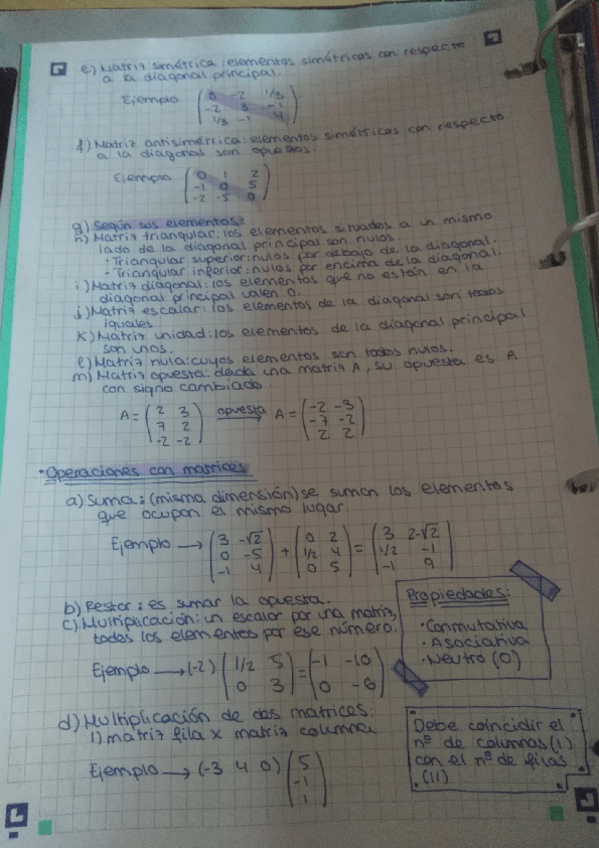 e) Matriz simétrica: elementos simétricos con respecto
a la diagonal principal.
Ejemplo (0 -2 1/3
-2 3 -1
1/3 -1 4)
f) Matriz antisimétrica: elementos simétricos con respecto
a la diagonal son opuestos.
Ejemplo (0 1 2
-1 0 5
-2 -5 0)
g) Según sus elementos:
h) Matriz triangular: los elementos situados a un mismo
lado de la diagonal principal son nulos.
· Triangular superior: nulos por debajo de la diagonal.
- Triangular inferior: nulos por encima de la diagonal.
i) Matriz diagonal: los elementos que no están en la
diagonal principal valen 0.
j) Matriz escalar: los elementos de la diagonal son todos
iguales
k) Matriz unidad: los elementos de la diagonal principal
son unos.
l) Matriz nula: cuyos elementos son todos nulos.
m) Matriz opuesta: dada una matriz A, su opuesta es A
con signo cambiado.
A = (2 3
7 2
-2 -2) opuesta → A = (-2 -3
-7 -2
2 2)
· Operaciones con matrices
a) Suma: (misma dimensión) se suman los elementos
que ocupan el mismo lugar.
Ejemplo → (3 -√2
0 -5
-1 4) + (0 2
1/2 4
0 5) = (3 2-√2
1/2 -1
-1 9)
b) Restar: es sumar la opuesta.
c) Multiplicación: un escalar por una matriz,
todos los elementos por ese número.
Ejemplo → (-2) (1/2 5
0 3) = (-1 -10
0 -6)
Propiedades:
· Conmutativa
· Asociativa
· Neutro (0)
d) Multiplicación de dos matrices:
1) matriz fila x matriz columna
Ejemplo → (-3 4 0) (5
-1
1)
Debe coincidir el
nº de columnas (I)
con el nº de filas
(II)